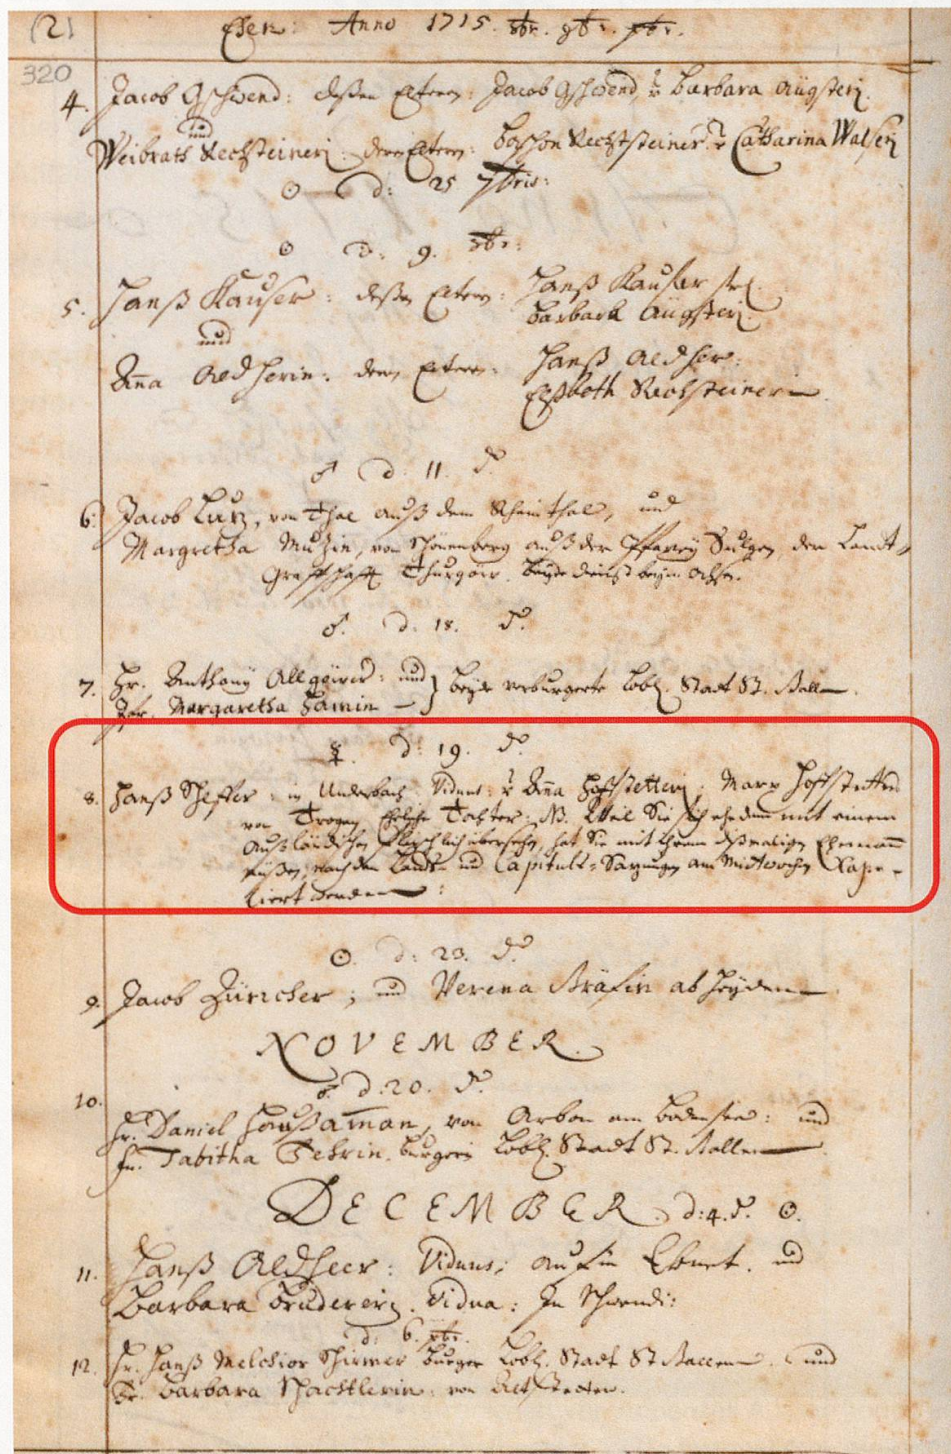 (2)
Ehen: Anno 1715. 8br. 9br. xbr.
320
4. Jacob Gschwend: deßen Elteren: Jacob Gschwend, & Barbara Äügsteri.
und
Weibrath Rechsteineri: deren Elteren: Baschon Rechtsteiner & Catharina Walseri
☉ d: 25 7bris:
☉ d: 9. 8br:
5. Hanß Kauser: deßen Elteren: Hanß Kauser sel.
Barbara Äügsteri.
und
Anna Aedherin: deren Elteren: Hanß Aedher:
Elßbeth Rechsteinerin
♂ d. 11. d.
6. Jacob Lutz, von Thal auß dem Rheinthal, und
Margretha Mutzin, von Schönenberg auß der Pfarrey Sulgen, der Landt-
Graffschafft Thurgöw. beyde dienst beym Ochsen.
♂. d. 18. d.
7. Hr. Anthony Allgöwer: und } beyde verburgerte Lobl. Statt St. Gallen.
Jfr. Margaretha Hamin
☿. d: 19. d.
8. Hanß Scheffer: in Underbach. Viduus: & Anna Hoffstetteri; Marx Hoffstetters
von Trogen Eheliche Tochter: NB. Weil Sie sich ehe dem mit einem
Außländischen fleischlich übersehen, hat Sie mit ihrem dißmaligen Ehemann
müßen, nach den Landt- und Capituls-Satzungen am Mitwochen Cope-
liert werden:
☉. d: 23. d.
9. Jacob Züricher; und Verena Gräfin ab Heyden
NOVEMBER.
d: 20. d.
10. Hr. Daniel Haußaman, von Arbon am Bodensee: und
Fr. Tabitha Fehrin. burgeri Lobl. Statt St. Gallen
DECEMBER. d: 4. d. ☉.
11. Hanß Aedheer: Viduus, auf in Ebnet. und
Barbara Brudereri. Vidua: In Schwendi:
d: 6. xbr.
12. Hr. Hanß Melchior Schirmer burger Lobl. Statt St Gallen. und
Fr. Barbara Schachtlerin: von Altstetten.